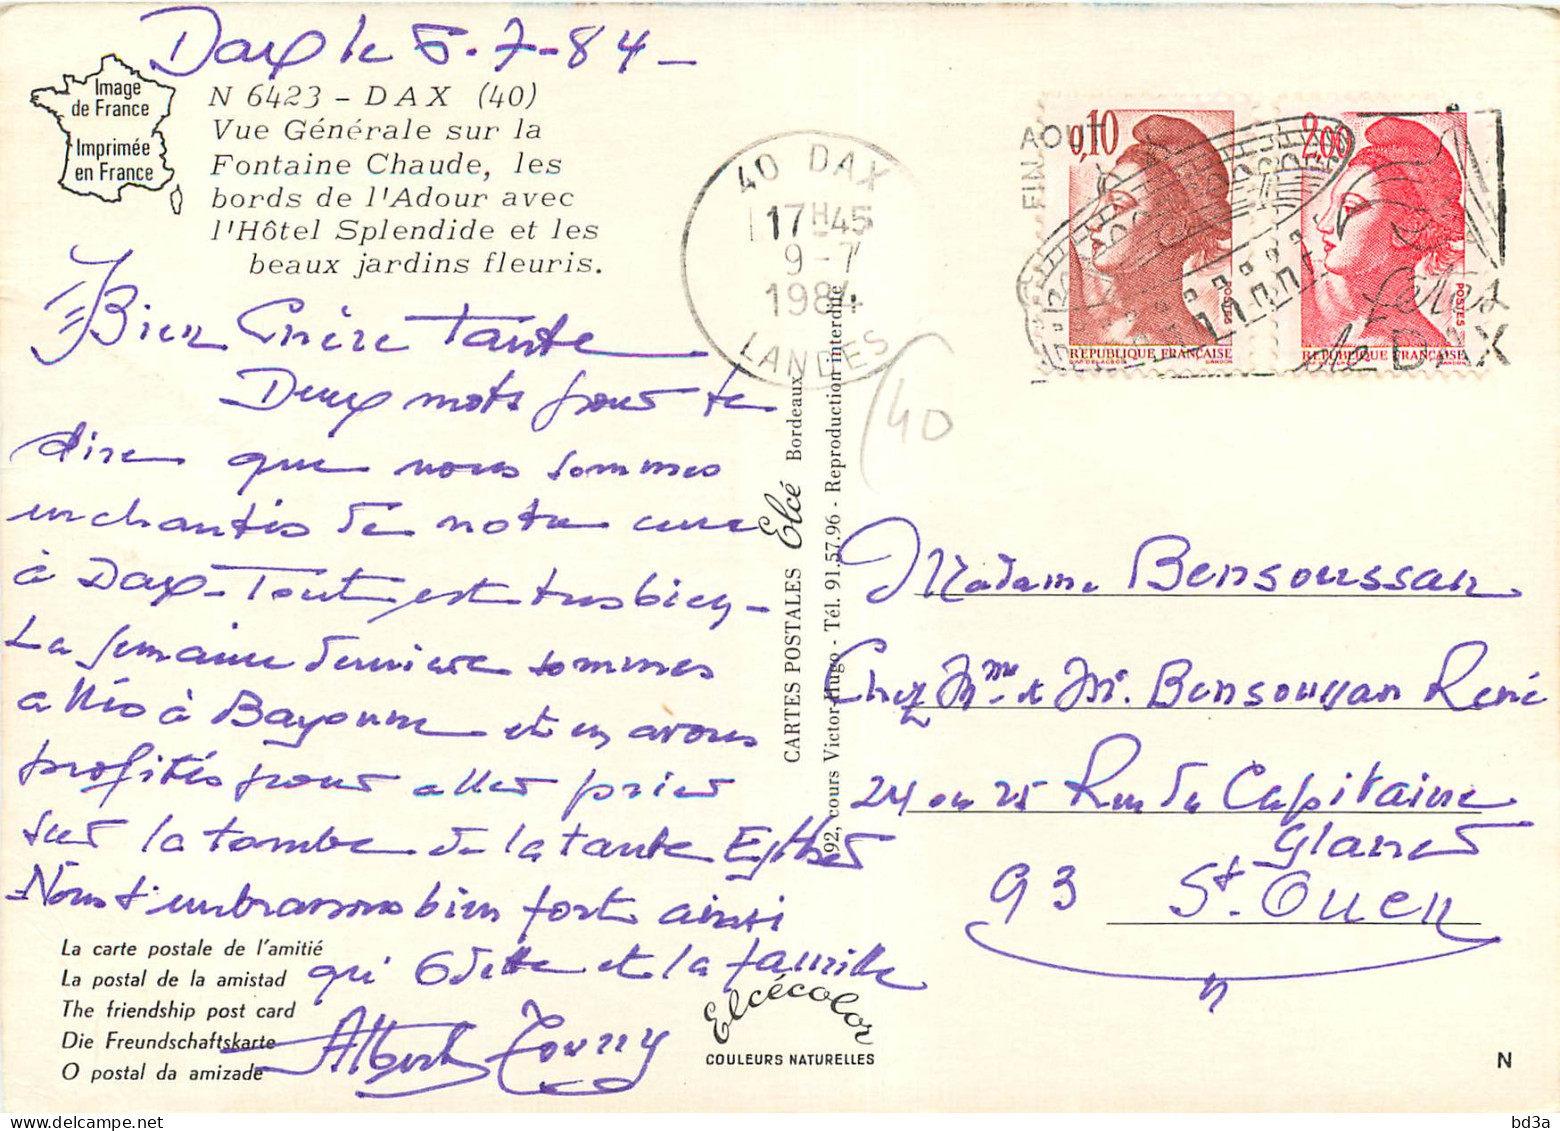 Dax le 6-7-84-
Image
de France
Imprimée
en France
N 6423 - DAX (40)
Vue Générale sur la
Fontaine Chaude, les
bords de l'Adour avec
l'Hôtel Splendide et les
beaux jardins fleuris.
Bien Chère Tante
Deux mots pour te
dire que nous sommes
enchantés de notre cure
à Dax - Tout est très bien -
La semaine dernière sommes
allés à Bayonne et en avons
profités pour aller prier
sur la tombe de la tante Esther
Nous t'embrassons bien fort ainsi
qui Odette et la famille
Albert
La carte postale de l'amitié
La postal de la amistad
The friendship post card
Die Freundschaftskarte
O postal da amizade
40 DAX
17H45
9-7
1984
LANDES
(40
CARTES POSTALES Elcé Bordeaux
92, cours Victor-Hugo - Tél. 91.57.96 - Reproduction interdite
Elcécolor
COULEURS NATURELLES
FIN AOUT
fêtes
de DAX
0,10
POSTES
REPUBLIQUE FRANÇAISE
2,00
POSTES
REPUBLIQUE FRANÇAISE
Madame Bensoussan
Chez Mme et Mr. Bensoussan René
24 ou 25 Rue du Capitaine
Glaner
93 St. Ouen
N
bd3a